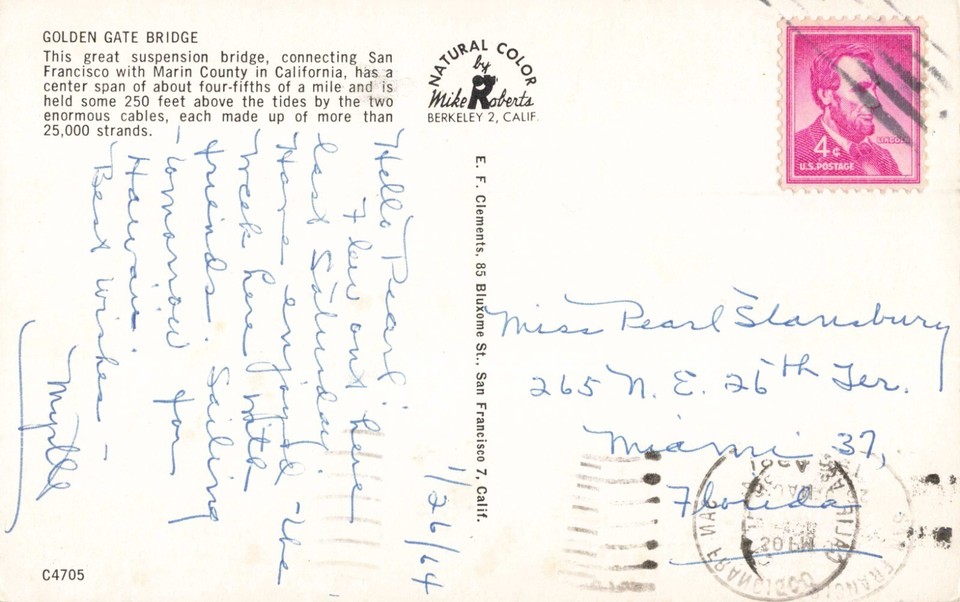 GOLDEN GATE BRIDGE
This great suspension bridge, connecting San
Francisco with Marin County in California, has a
center span of about four-fifths of a mile and is
held some 250 feet above the tides by the two
enormous cables, each made up of more than
25,000 strands.
NATURAL COLOR
by
Mike Roberts
BERKELEY 2, CALIF.
LINCOLN
4¢
U.S. POSTAGE
E. F. Clements, 85 Bluxome St., San Francisco 7, Calif.
1/26/64
Hello Pearl:
Flew out here
last Saturday
Have enjoyed the
week here with
friends. Sailing
tomorrow for
Hawaii
Best wishes –
Myrtle
Miss Pearl Stansbury
265 N. E. 26th Ter.
Miami 37,
Florida
SAN FRANCISCO
CALIF
PM
C4705